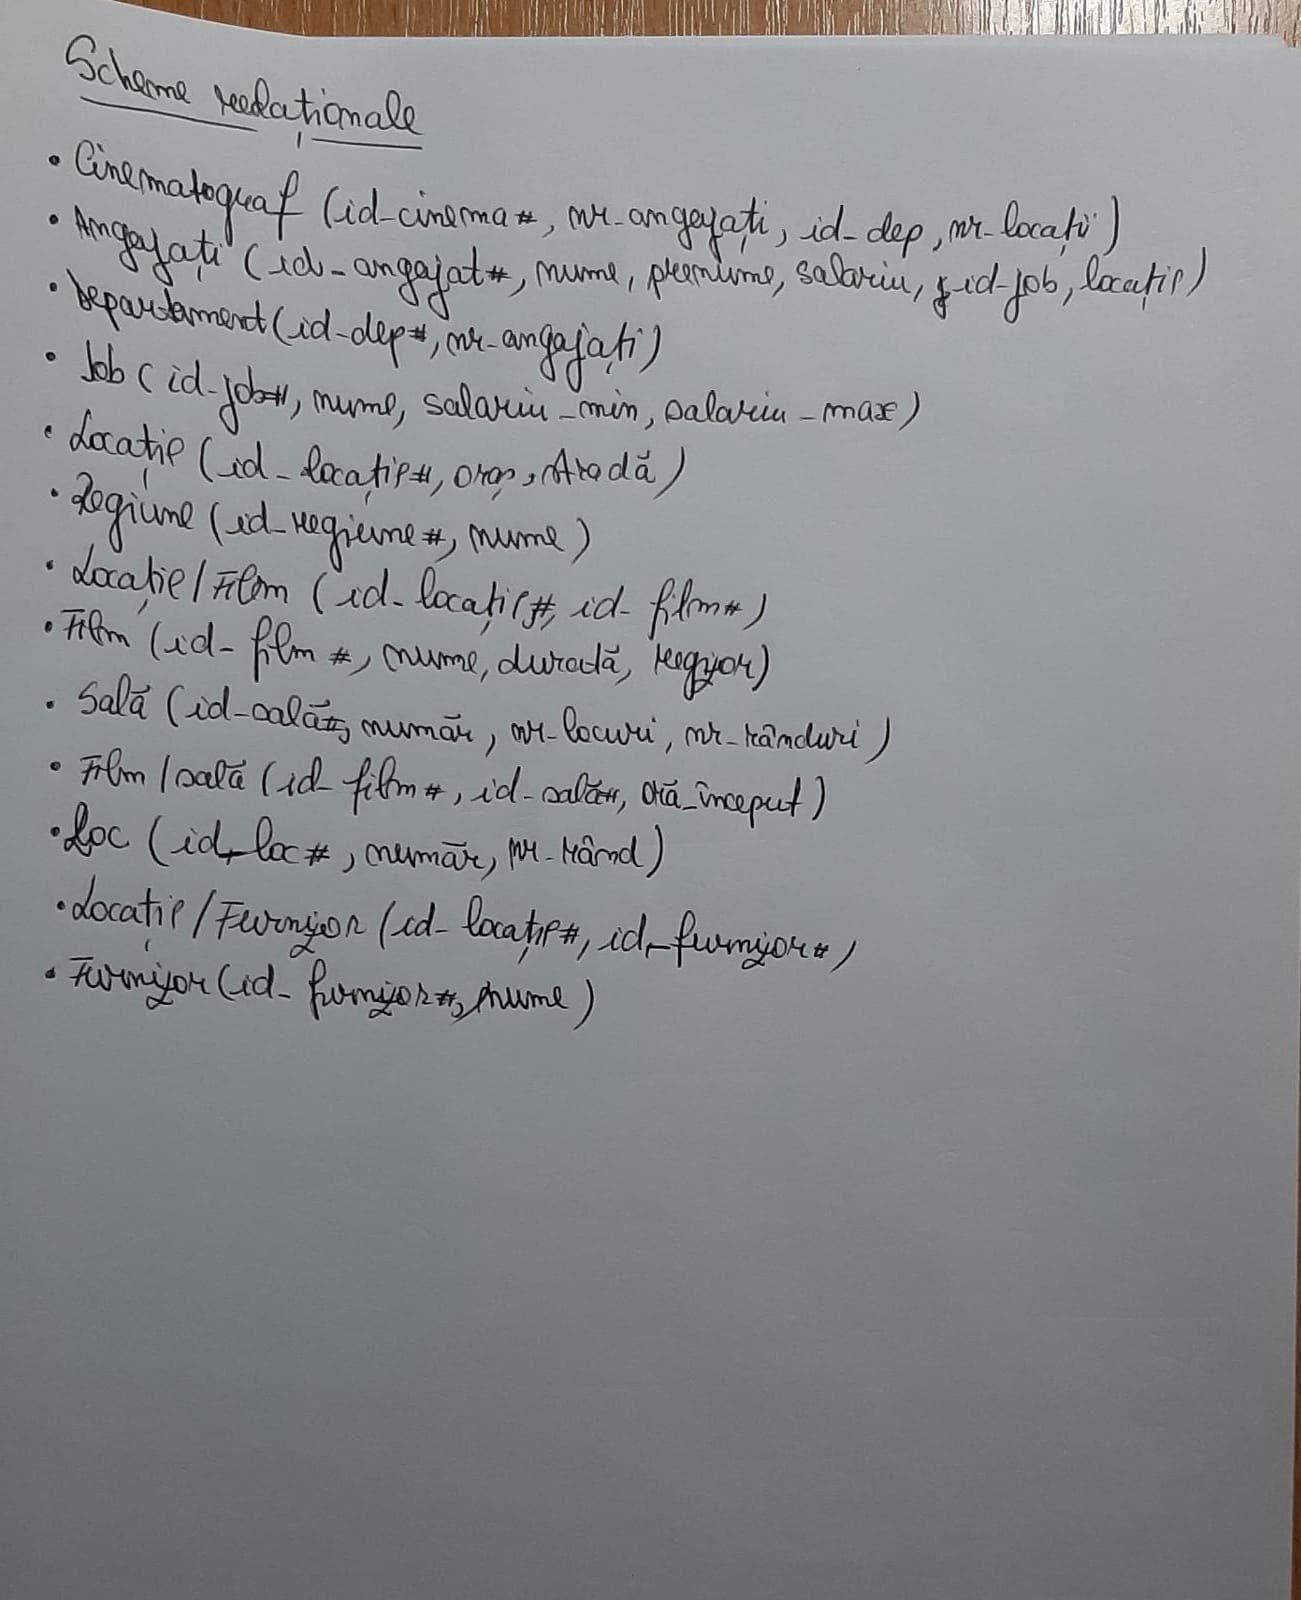 Scheme relaționale
• Cinematograf (id-cinema#, nr-angajați, id-dep, nr-locații)
• Angajați (id-angajat#, nume, prenume, salariu, id-job, locație)
• Departament (id-dep#, nr-angajați)
• Job (id-job#, nume, salariu-min, salariu-max)
• Locație (id-locație#, oraș, stradă)
• Regiune (id-regiune#, nume)
• Locație/Film (id-locație#, id-film#)
• Film (id-film#, nume, durată, regizor)
• Sală (id-sală#, număr, nr-locuri, nr-rânduri)
• Film/sală (id-film#, id-sală#, oră_început)
• Loc (id-loc#, număr, nr-rând)
• Locație/Furnizor (id-locație#, id-furnizor#)
• Furnizor (id-furnizor#, nume)